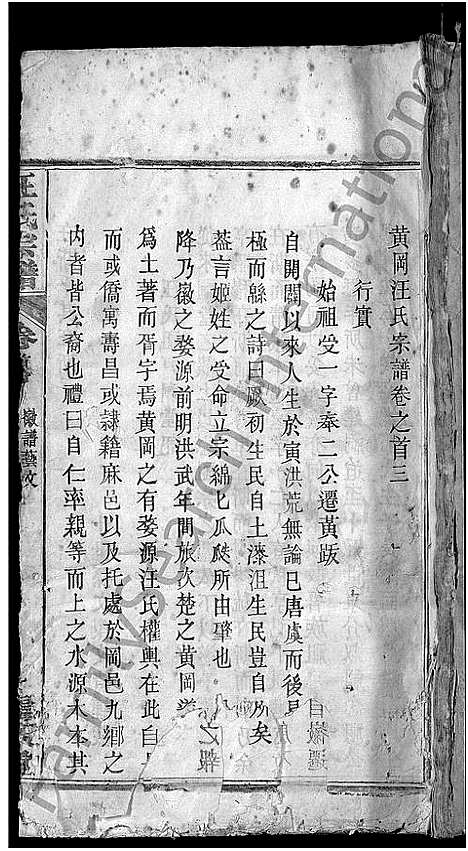 黃岡汪氏宗譜卷之首三
行實
始祖受一字奉二公遷黃䟦
自開闢以來人生於寅洪荒無論已唐虞而後
極而緜之詩曰厥初生民自土漆沮生民豈自所矣
葢言姬姓之受命立宗綿匕瓜瓞所由肇也
降乃徽之婺源前明洪武年間旅次楚之黃岡
爲土著而胥宇焉黃岡之有婺源汪氏權輿在此自
而或僑寓壽昌或隸籍麻邑以及托處於岡邑九鄉之
內者皆公裔也禮曰自仁率親等而上之水源木本其
之報
自徽遷
汪氏宗譜
卷首
徽譜藝文
FamilySearch International